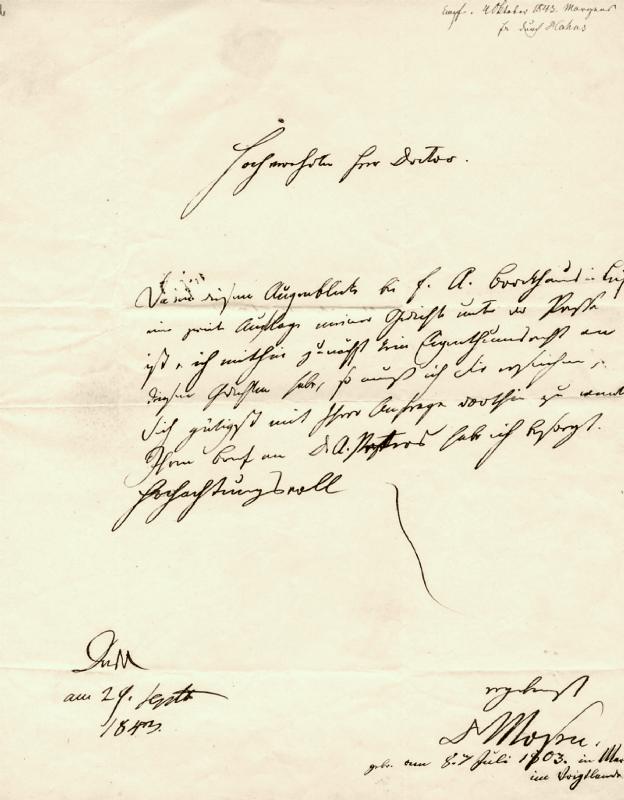 Empf. 4 Oktober 1843. Morgens
durch Hahns
Hochverehrter Herr Doctor.
Da in diesem Augenblicke bei F. A. Brockhaus in Leip
eine zweite Auflage meiner Gedichte unter der Presse
ist u. ich mithin zunächst kein Eigenthumsrecht an
diesen Gedichten habe, so muß ich Sie ersuchen,
Sich gütigst mit Ihrer Anfrage dorthin zu wend
Ihren Brief an D. A. habe ich besorgt.
Hochachtungsvoll
am 29. Septb
1843.
ergebenst
D Mosen.
geb. am 8. Juli 1803. in Mar
im Voigtlande